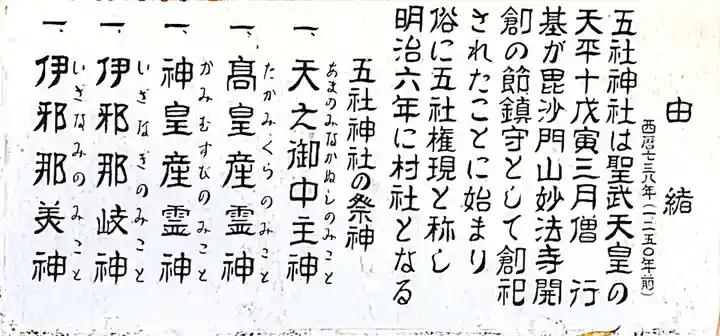 由緒
五社神社は聖武天皇の
西暦七三八年(一二五〇年前)
天平十戊寅三月僧 行
基が毘沙門山妙法寺開
創の節鎮守として創祀
されたことに始まり
俗に五社権現と称し
明治六年に村社となる
五社神社の祭神
一、天之御中主神
あまのみなかぬしのみこと
一、髙皇産霊神
たかみくらのみこと
一、神皇産霊神
かみむすびのみこと
一、伊邪那岐神
いざなぎのみこと
一、伊邪那美神
いざなみのみこと